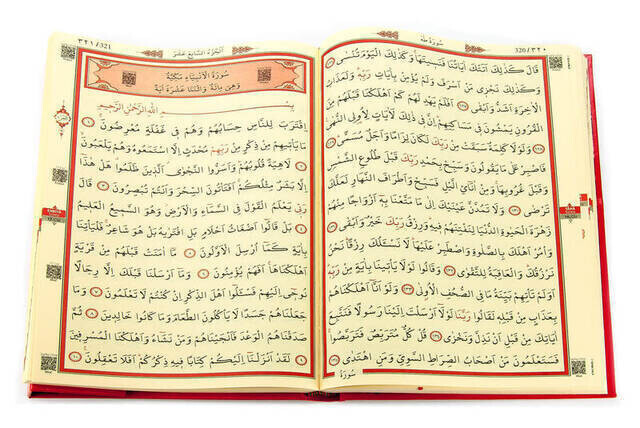 ٣٢٠/320
سُورَةُ طٰهٰ
قَالَ كَذٰلِكَ اَتَتْكَ اٰيَاتُنَا فَنَسٖيتَهَا وَكَذٰلِكَ الْيَوْمَ تُنْسٰى ﴿١٢٦﴾
وَكَذٰلِكَ نَجْزٖى مَنْ اَسْرَفَ وَلَمْ يُؤْمِنْ بِاٰيَاتِ رَبِّهٖ وَلَعَذَابُ
الْاٰخِرَةِ اَشَدُّ وَاَبْقٰى ﴿١٢٧﴾ اَفَلَمْ يَهْدِ لَهُمْ كَمْ اَهْلَكْنَا قَبْلَهُمْ مِنَ
الْقُرُونِ يَمْشُونَ فٖى مَسَاكِنِهِمْ اِنَّ فٖى ذٰلِكَ لَاٰيَاتٍ لِاُولِى النُّهٰى
﴿١٢٨﴾ وَلَوْلَا كَلِمَةٌ سَبَقَتْ مِنْ رَبِّكَ لَكَانَ لِزَامًا وَاَجَلٌ مُسَمًّى ﴿١٢٩﴾
فَاصْبِرْ عَلٰى مَا يَقُولُونَ وَسَبِّحْ بِحَمْدِ رَبِّكَ قَبْلَ طُلُوعِ الشَّمْسِ
وَقَبْلَ غُرُوبِهَا وَمِنْ اٰنَائِ الَّيْلِ فَسَبِّحْ وَاَطْرَافَ النَّهَارِ لَعَلَّكَ
تَرْضٰى ﴿١٣٠﴾ وَلَا تَمُدَّنَّ عَيْنَيْكَ اِلٰى مَا مَتَّعْنَا بِهٖ اَزْوَاجًا مِنْهُمْ
زَهْرَةَ الْحَيٰوةِ الدُّنْيَا لِنَفْتِنَهُمْ فٖيهِ وَرِزْقُ رَبِّكَ خَيْرٌ وَاَبْقٰى ﴿١٣١﴾
وَاْمُرْ اَهْلَكَ بِالصَّلٰوةِ وَاصْطَبِرْ عَلَيْهَا لَا نَسْـَٔلُكَ رِزْقًا نَحْنُ
نَرْزُقُكَ وَالْعَاقِبَةُ لِلتَّقْوٰى ﴿١٣٢﴾ وَقَالُوا لَوْلَا يَاْتٖينَا بِاٰيَةٍ مِنْ رَبِّهٖ
اَوَلَمْ تَاْتِهِمْ بَيِّنَةُ مَا فِى الصُّحُفِ الْاُولٰى ﴿١٣٣﴾ وَلَوْ اَنَّا اَهْلَكْنَاهُمْ
بِعَذَابٍ مِنْ قَبْلِهٖ لَقَالُوا رَبَّنَا لَوْلَا اَرْسَلْتَ اِلَيْنَا رَسُولًا فَنَتَّبِعَ
اٰيَاتِكَ مِنْ قَبْلِ اَنْ نَذِلَّ وَنَخْزٰى ﴿١٣٤﴾ قُلْ كُلٌّ مُتَرَبِّصٌ فَتَرَبَّصُوا
فَسَتَعْلَمُونَ مَنْ اَصْحَابُ الصِّرَاطِ السَّوِىِّ وَمَنِ اهْتَدٰى ﴿١٣٥﴾
سُورَةُ
اَلْجُزْءُ السَّابِعُ عَشَرَ
٣٢١/321
سُورَةُ الْاَنْبِيَاءِ مَكِّيَّةٌ
وَهِىَ مِائَةٌ وَاثْنَتَا عَشْرَةَ اٰيَةً
بِسْمِ اللّٰهِ الرَّحْمٰنِ الرَّحٖيمِ
اِقْتَرَبَ لِلنَّاسِ حِسَابُهُمْ وَهُمْ فٖى غَفْلَةٍ مُعْرِضُونَ ﴿١﴾
مَا يَاْتٖيهِمْ مِنْ ذِكْرٍ مِنْ رَبِّهِمْ مُحْدَثٍ اِلَّا اسْتَمَعُوهُ وَهُمْ يَلْعَبُونَ
﴿٢﴾ لَاهِيَةً قُلُوبُهُمْ وَاَسَرُّوا النَّجْوَى الَّذٖينَ ظَلَمُوا هَلْ هٰذَا
اِلَّا بَشَرٌ مِثْلُكُمْ اَفَتَاْتُونَ السِّحْرَ وَاَنْتُمْ تُبْصِرُونَ ﴿٣﴾ قَالَ
رَبّٖى يَعْلَمُ الْقَوْلَ فِى السَّمَاءِ وَالْاَرْضِ وَهُوَ السَّمٖيعُ الْعَلٖيمُ
﴿٤﴾ بَلْ قَالُوا اَضْغَاثُ اَحْلَامٍ بَلِ افْتَرٰيهُ بَلْ هُوَ شَاعِرٌ فَلْيَاْتِنَا
بِاٰيَةٍ كَمَا اُرْسِلَ الْاَوَّلُونَ ﴿٥﴾ مَا اٰمَنَتْ قَبْلَهُمْ مِنْ قَرْيَةٍ
اَهْلَكْنَاهَا اَفَهُمْ يُؤْمِنُونَ ﴿٦﴾ وَمَا اَرْسَلْنَا قَبْلَكَ اِلَّا رِجَالًا
نُوحٖى اِلَيْهِمْ فَسْـَٔلُوا اَهْلَ الذِّكْرِ اِنْ كُنْتُمْ لَا تَعْلَمُونَ ﴿٧﴾ وَمَا
جَعَلْنَاهُمْ جَسَدًا لَا يَاْكُلُونَ الطَّعَامَ وَمَا كَانُوا خَالِدٖينَ ﴿٨﴾ ثُمَّ
صَدَقْنَاهُمُ الْوَعْدَ فَاَنْجَيْنَاهُمْ وَمَنْ نَشَاءُ وَاَهْلَكْنَا الْمُسْرِفٖينَ
﴿٩﴾ لَقَدْ اَنْزَلْنَا اِلَيْكُمْ كِتَابًا فٖيهِ ذِكْرُكُمْ اَفَلَا تَعْقِلُونَ ﴿١٠﴾